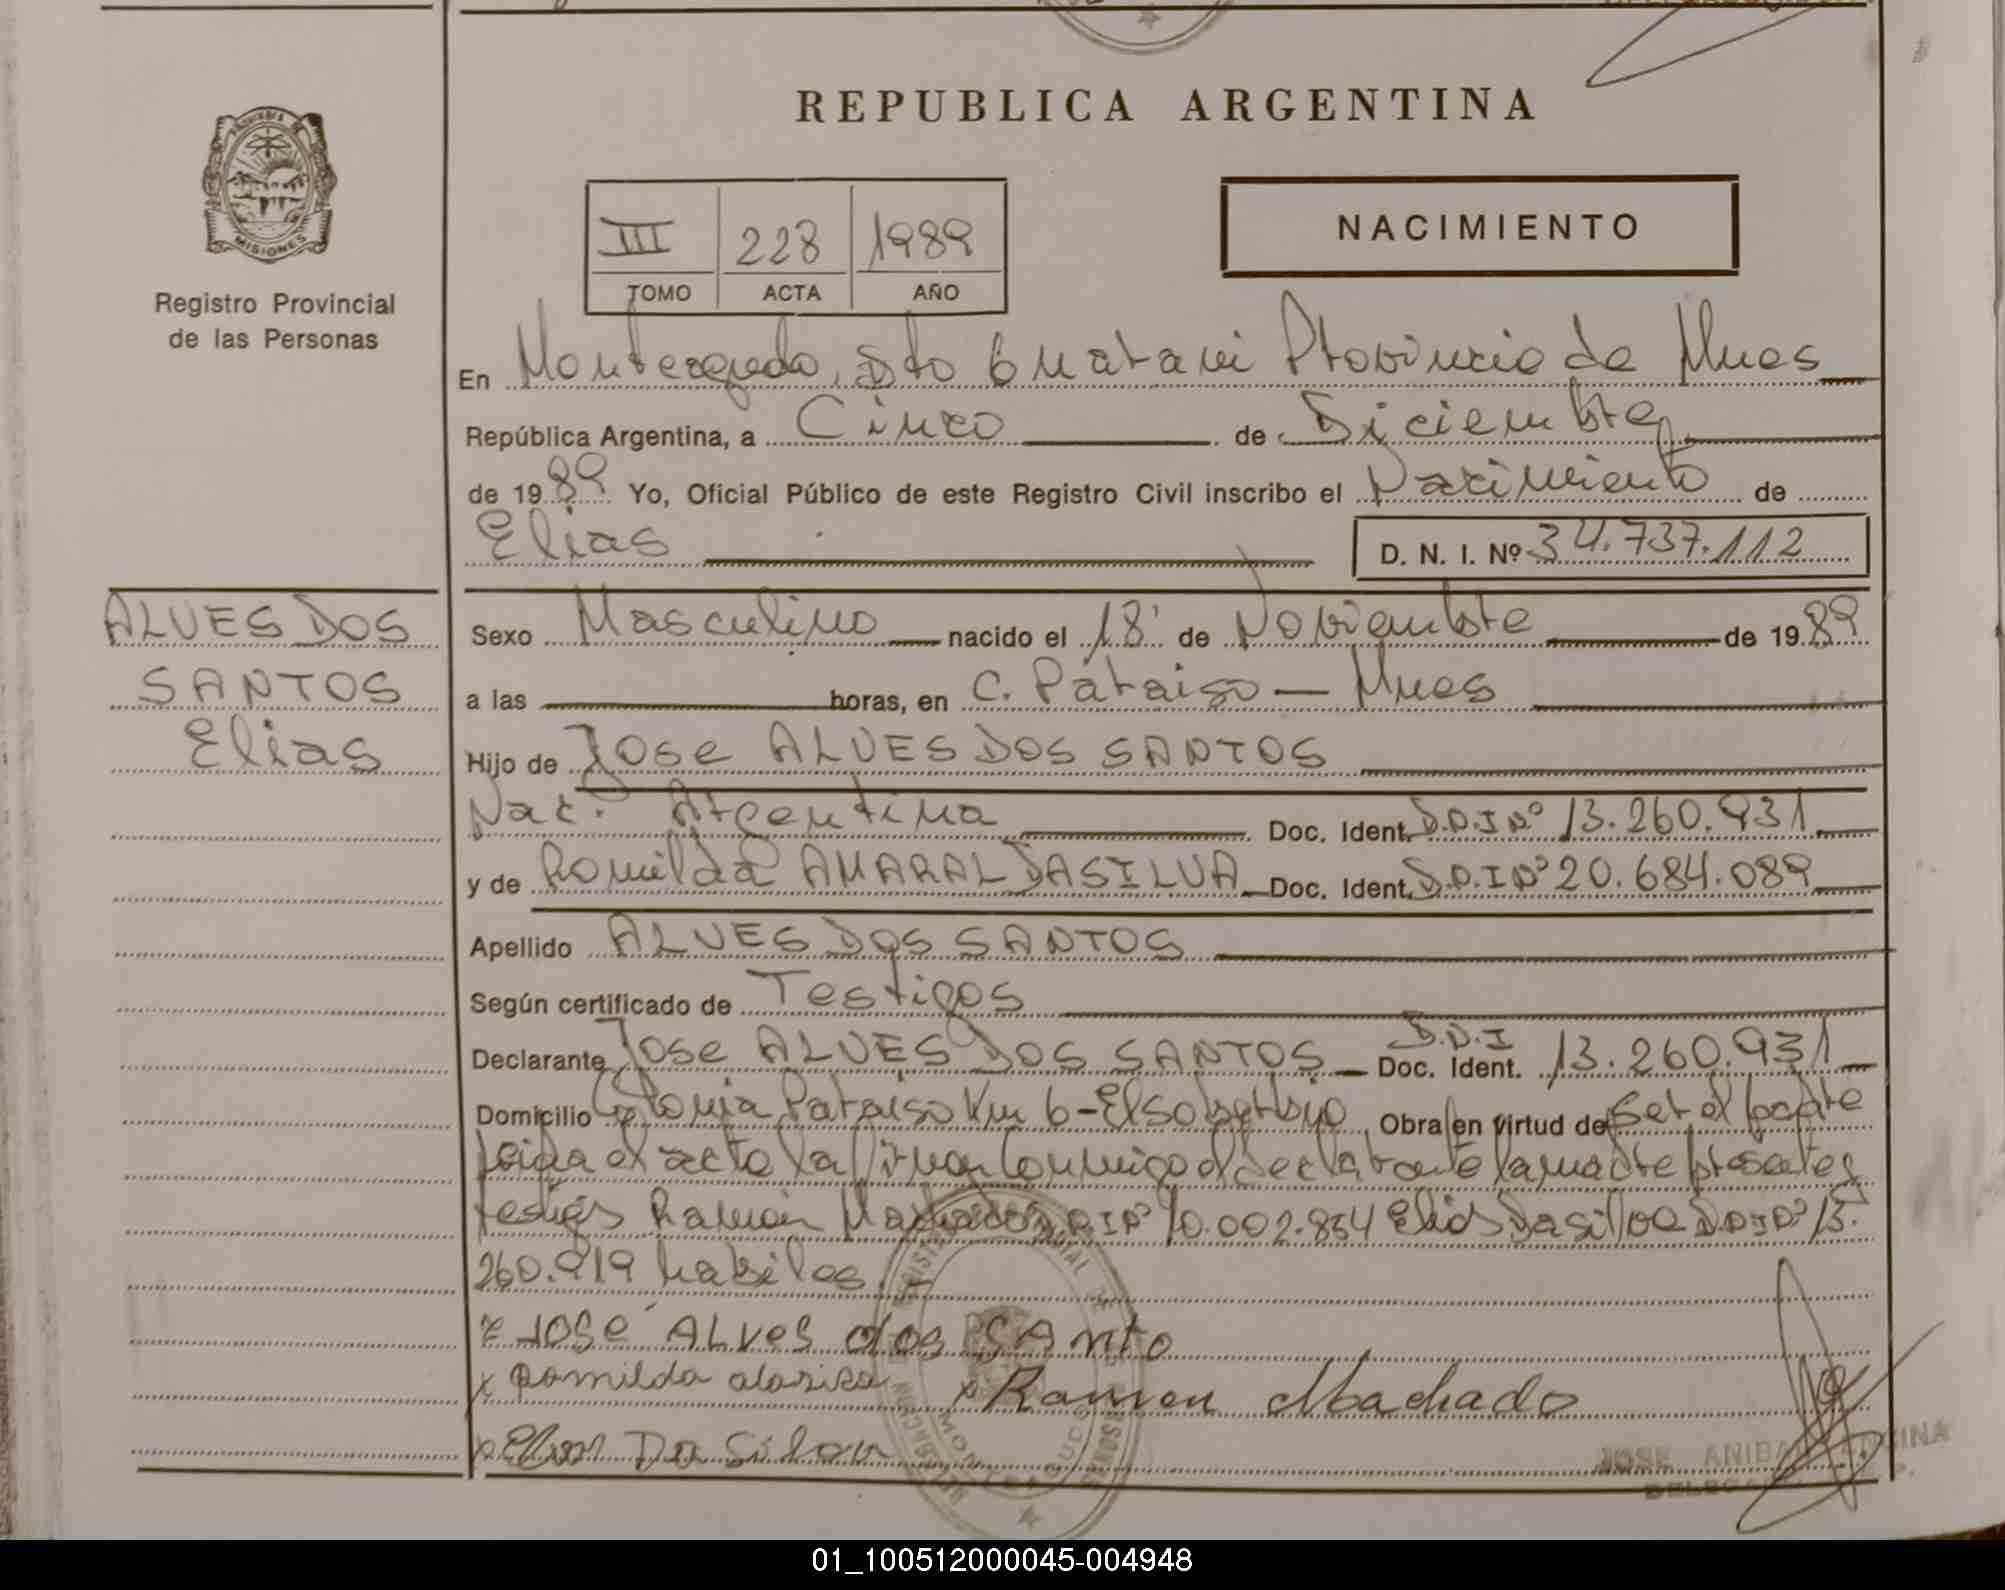 REPUBLICA ARGENTINA
PROVINCIA DE
MISIONES
Registro Provincial
de las Personas
NACIMIENTO
III 228 1989
TOMO ACTA AÑO
En Monteagudo, Dto Guarani Provincia de Mnes
República Argentina, a Cinco de Diciembre
de 1989 Yo, Oficial Público de este Registro Civil inscribo el Nacimiento de
Elias D. N. I. Nº 34.737.112
ALVES DOS
SANTOS
Elias
Sexo Masculino nacido el 18 de Noviembre de 1989
a las horas, en C. Paraiso - Mnes
Hijo de Jose ALVES DOS SANTOS
Nac. Argentina Doc. Ident. D.N.I Nº 13.260.931
y de Romilda AMARAL DASILVA Doc. Ident. D.N.I Nº 20.684.089
Apellido ALVES DOS SANTOS
Según certificado de Testigos
Declarante Jose ALVES DOS SANTOS D.N.I Doc. Ident. 13.260.931
Domicilio Colonia Paraiso Km 6-El Soberbio Obra en virtud de ser el padre
leida el acto la firman conmigo el declarante la madre presentes
testigos Ramón Machado D.N.I Nº 10.002.854 Elias Dasilva D.N.I Nº 13.
260.919 habiles
x JOSÉ ALVES dos SAnto
x Romilda dasilva x Ramon Machado
x Elias Da Silva
JOSE ANIBAL
01_100512000045-004948